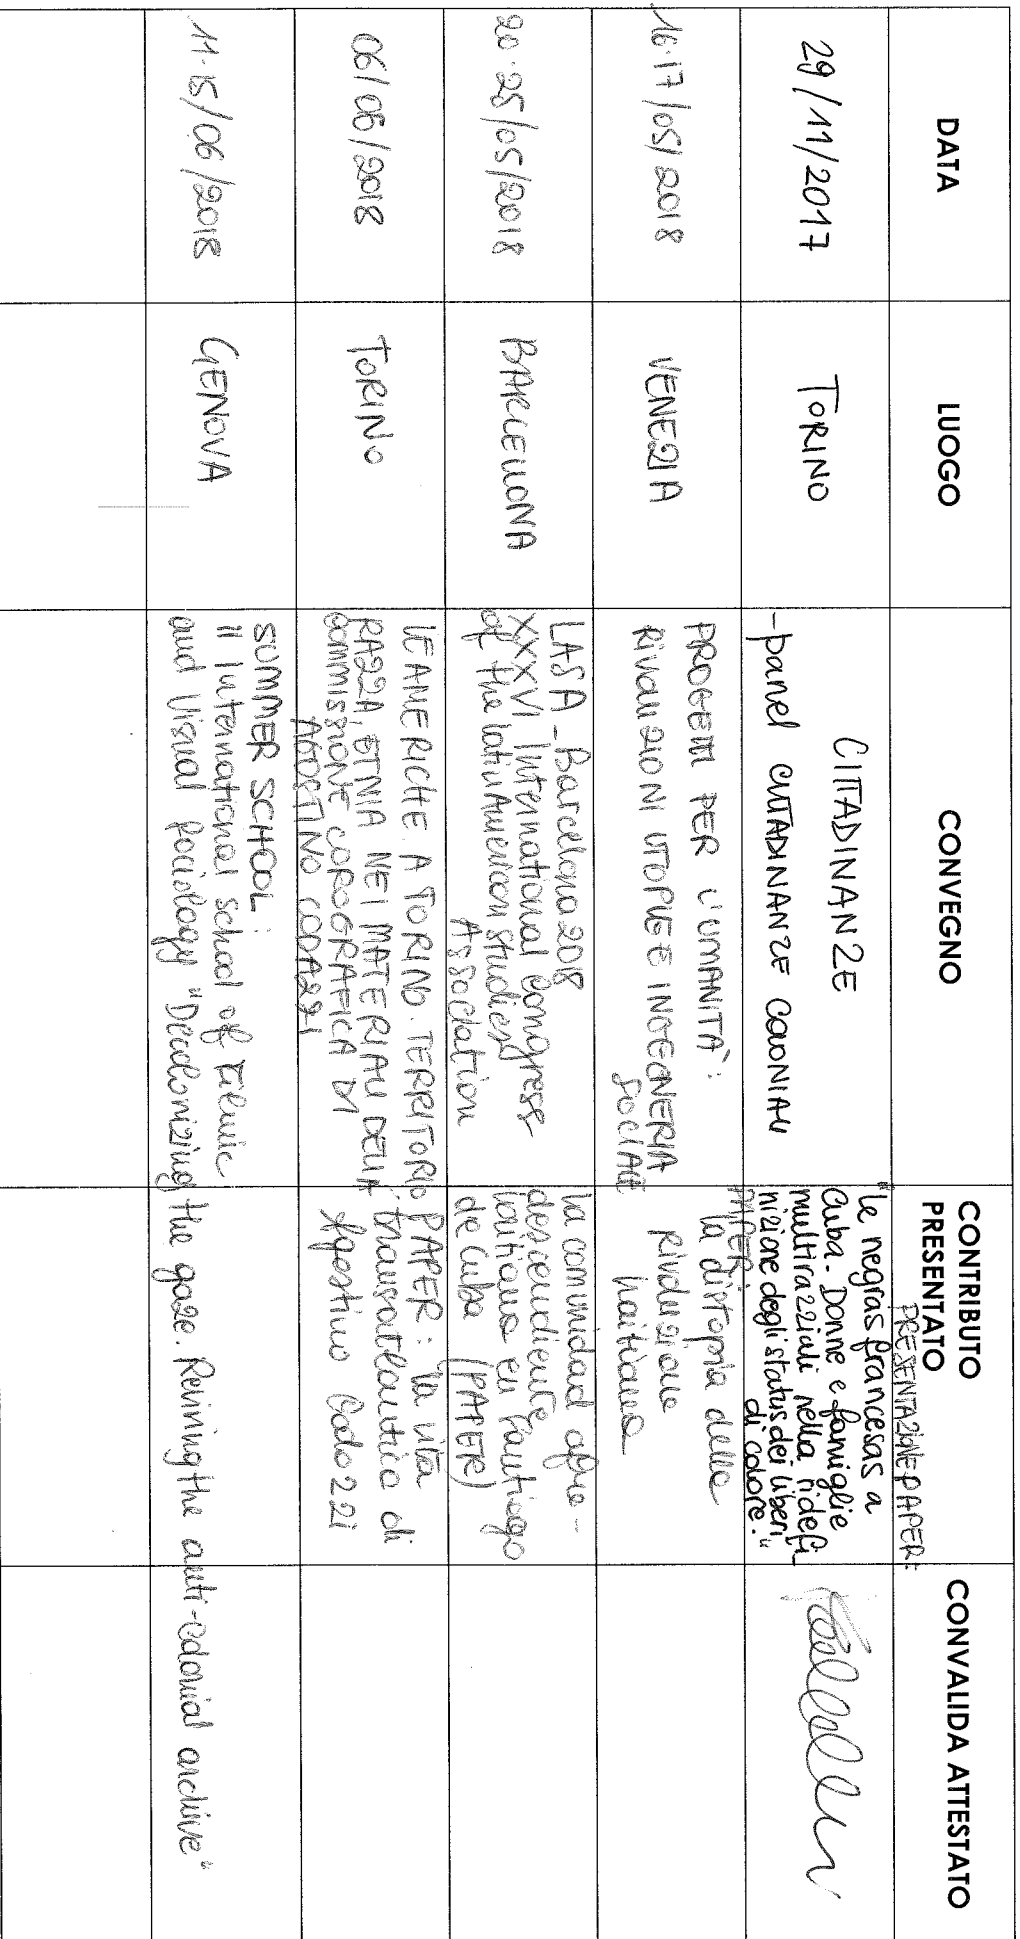 DATA
LUOGO
CONVEGNO
CONTRIBUTO
PRESENTATO
CONVALIDA ATTESTATO
29/11/2017
TORINO
CITTADINANZE
-panel CITTADINANZE COLONIALI
PRESENTAZIONE PAPER:
"Le negras francesas a
Cuba. Donne e famiglie
multirazziali nella ridefi
nizione degli status dei liberi
di colore."
16-17/05/2018
VENEZIA
PROGETTI PER L'UMANITÀ:
RIVOLUZIONI UTOPIE E INGEGNERIA
SOCIALE
PAPER:
la distopia della
Rivoluzione
haitiana
20-25/05/2018
BARCELLONA
LASA_Barcelona 2018
XXXVI International Congress
of the Latin American Studies
Association
La comunidad afro-
descendiente
haitiana en Santiago
de Cuba (PAPER)
06/06/2018
TORINO
LE AMERICHE A TORINO. TERRITORIO
RAZZA, ETNIA NEI MATERIALI DELLA
COMMISSIONE COROGRAFICA DI
AGOSTINO CODAZZI
PAPER: "La vita
transatlantica di
Agostino Codazzi
11-15/06/2018
GENOVA
SUMMER SCHOOL:
II International School of Filmic
and Visual Sociology "Decolonizing the gaze. Reviving the anti-colonial archive"